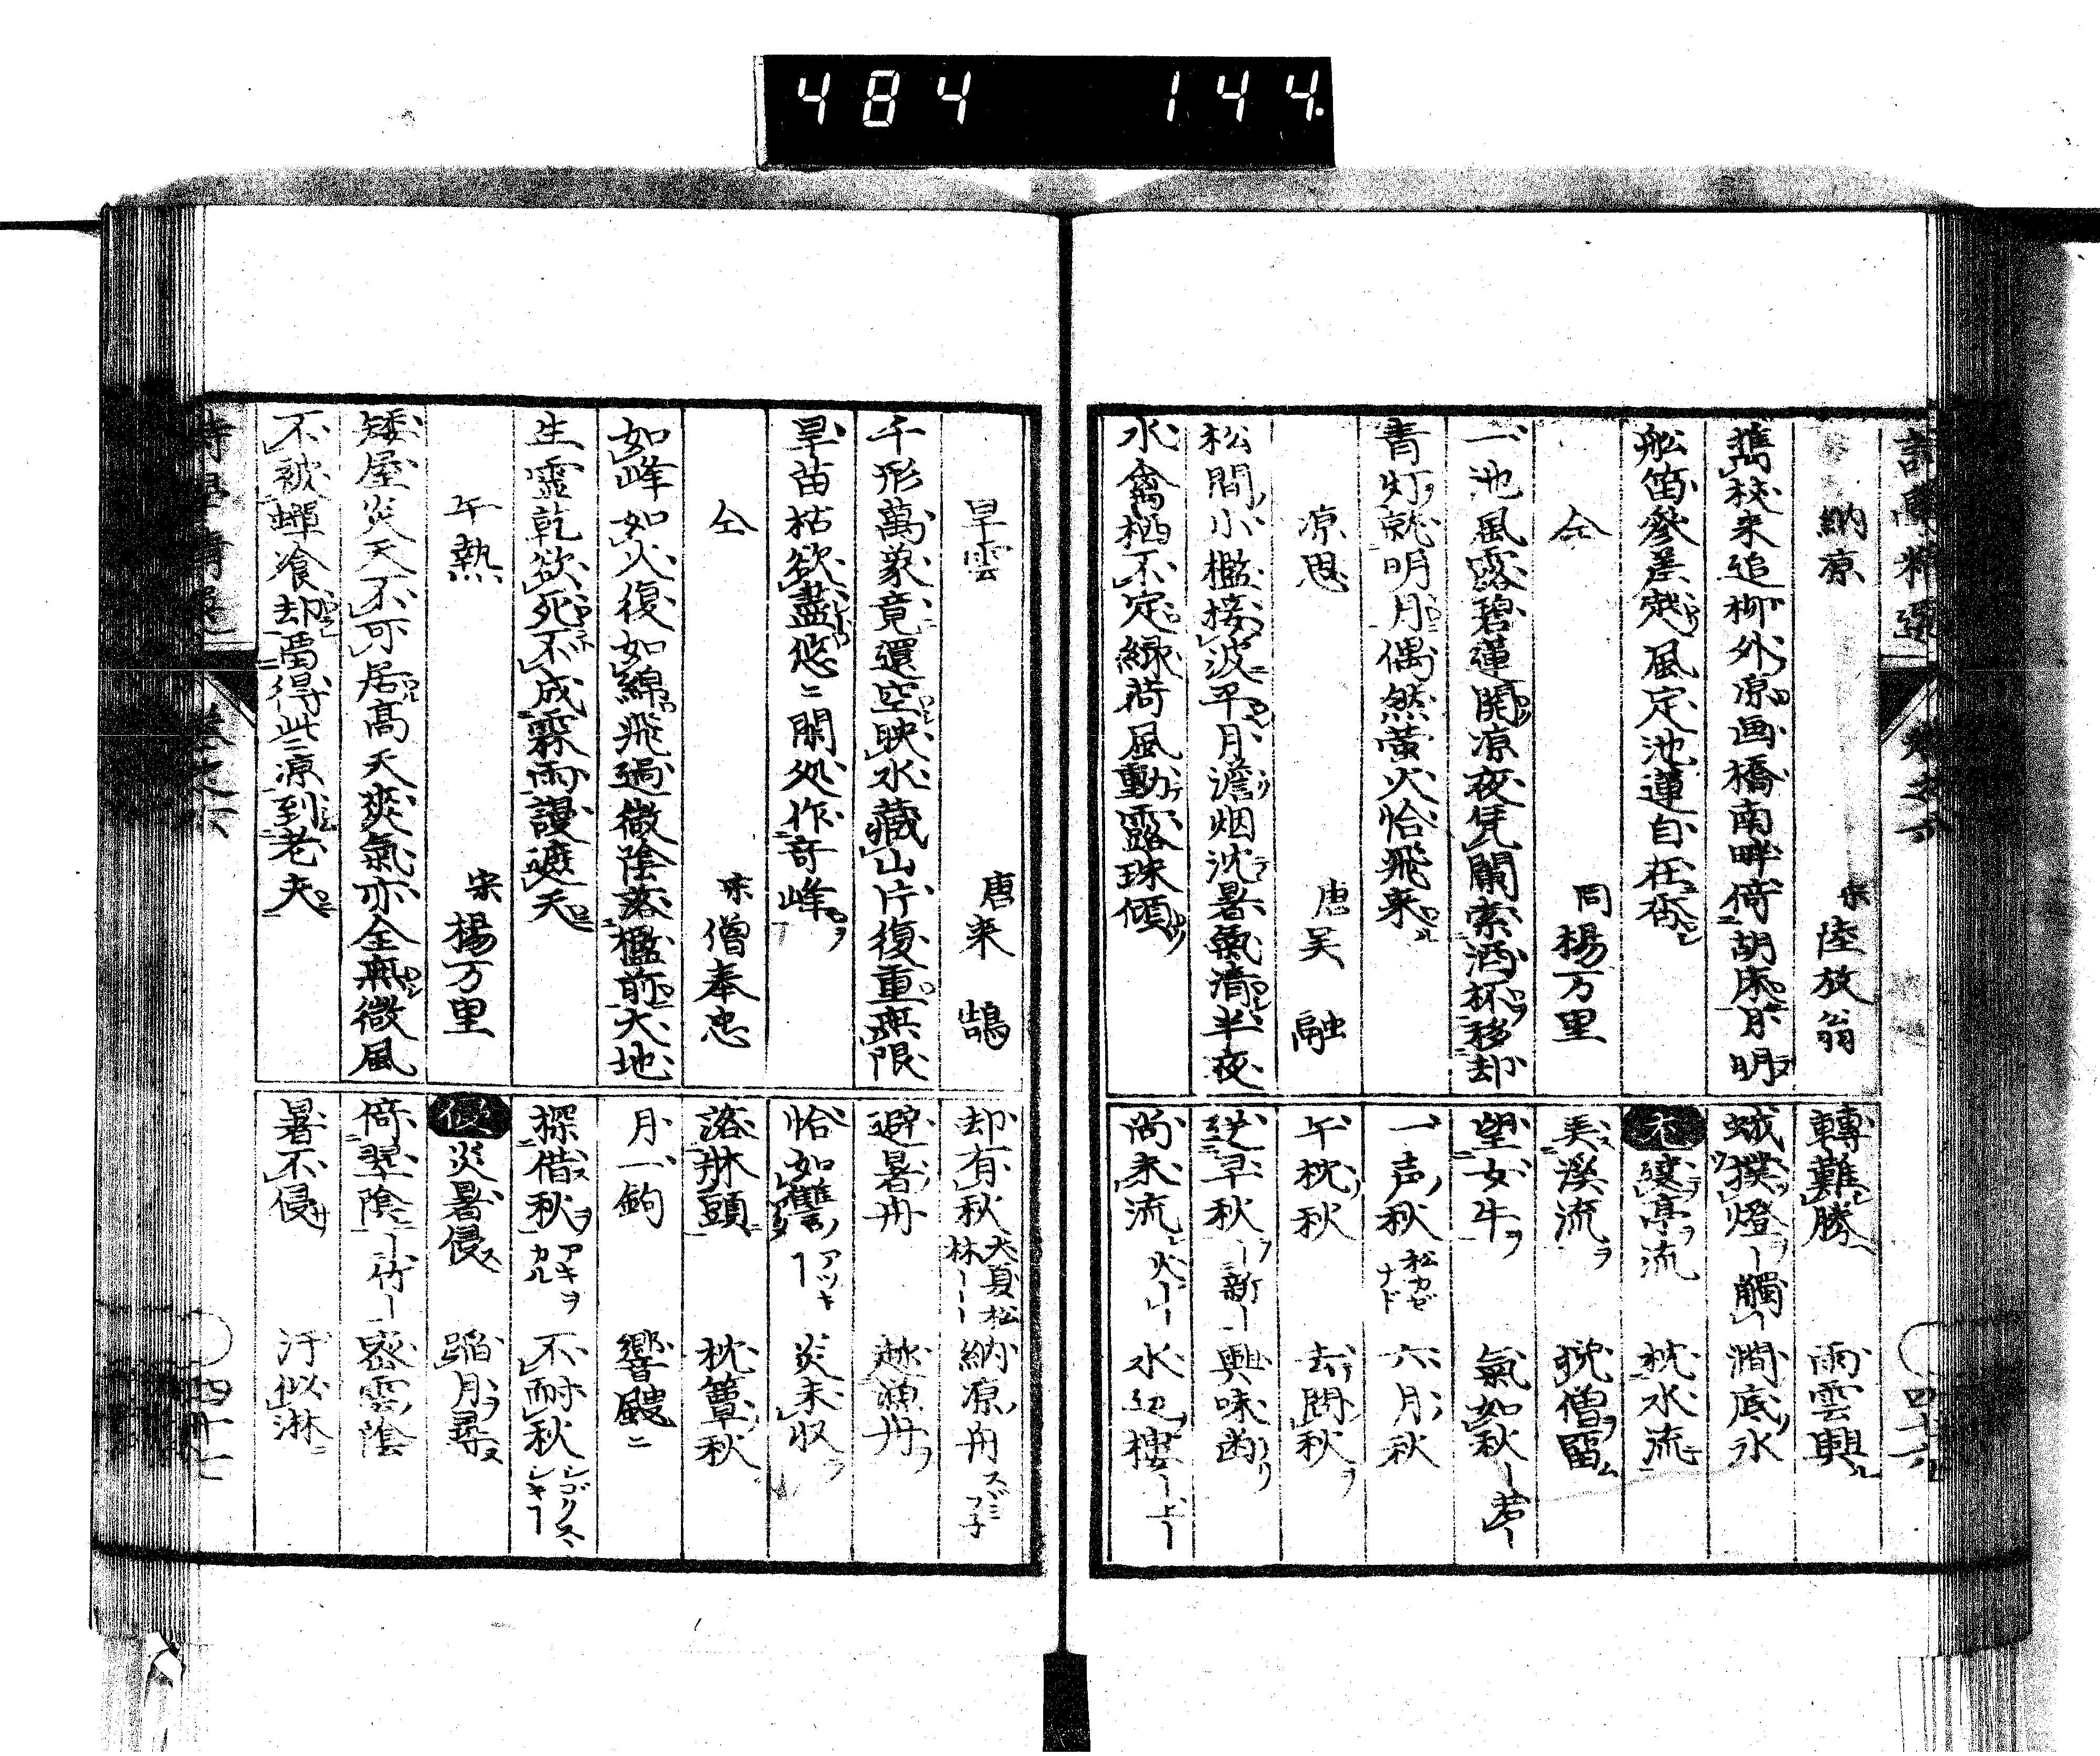 484 144
納凉 宋 陸放翁
携杖来追柳外凉画橋南畔倚胡床月明
舩笛參差起風定池蓮自在香
仝 同 楊万里
一池風露碧蓮開凉夜凭闌索酒杯移却
青灯就明月偶然螢火恰飛来
凉思 唐 吴融
松間小檻接波平月澹烟沈暑氣清半夜
水禽栖不定緑荷風動露珠傾
轉難勝 雨雲興
蛾撲燈 澗底氷
亭流 枕水流
美溪流 僧留
望女牛 氣如秋
一声秋 松カゼナド 六月秋
午枕秋 去問秋
早秋 新 興味幽
尚未流 火 水辺楼 上
四十六
旱雲 唐 来鵠
千形萬象竟還空映水藏山片復重無限
旱苗枯欲盡悠ニ閑処作竒峰
仝 宋 僧奉忠
如峰如火復如綿飛過微陰落檻前大地
生霊乾欲死不成霖雨謾遮天
午熱 宋 楊万里
矮屋炎天不可居高天爽氣亦全無微風
不被蟬飡却畱得些凉到老夫
却有秋 大夏松林 納凉舟 スヾミブ子
避暑舟 趁凉舟
恰如讐 アツキ 炎未収
落牀頭 枕簟秋
月一鉤 響颼ニ
探借秋 アキヲカル 不耐秋
侵 炎暑侵 蹈月尋
倚翠陰 竹 密雲陰
暑不侵 汗似淋
四十七